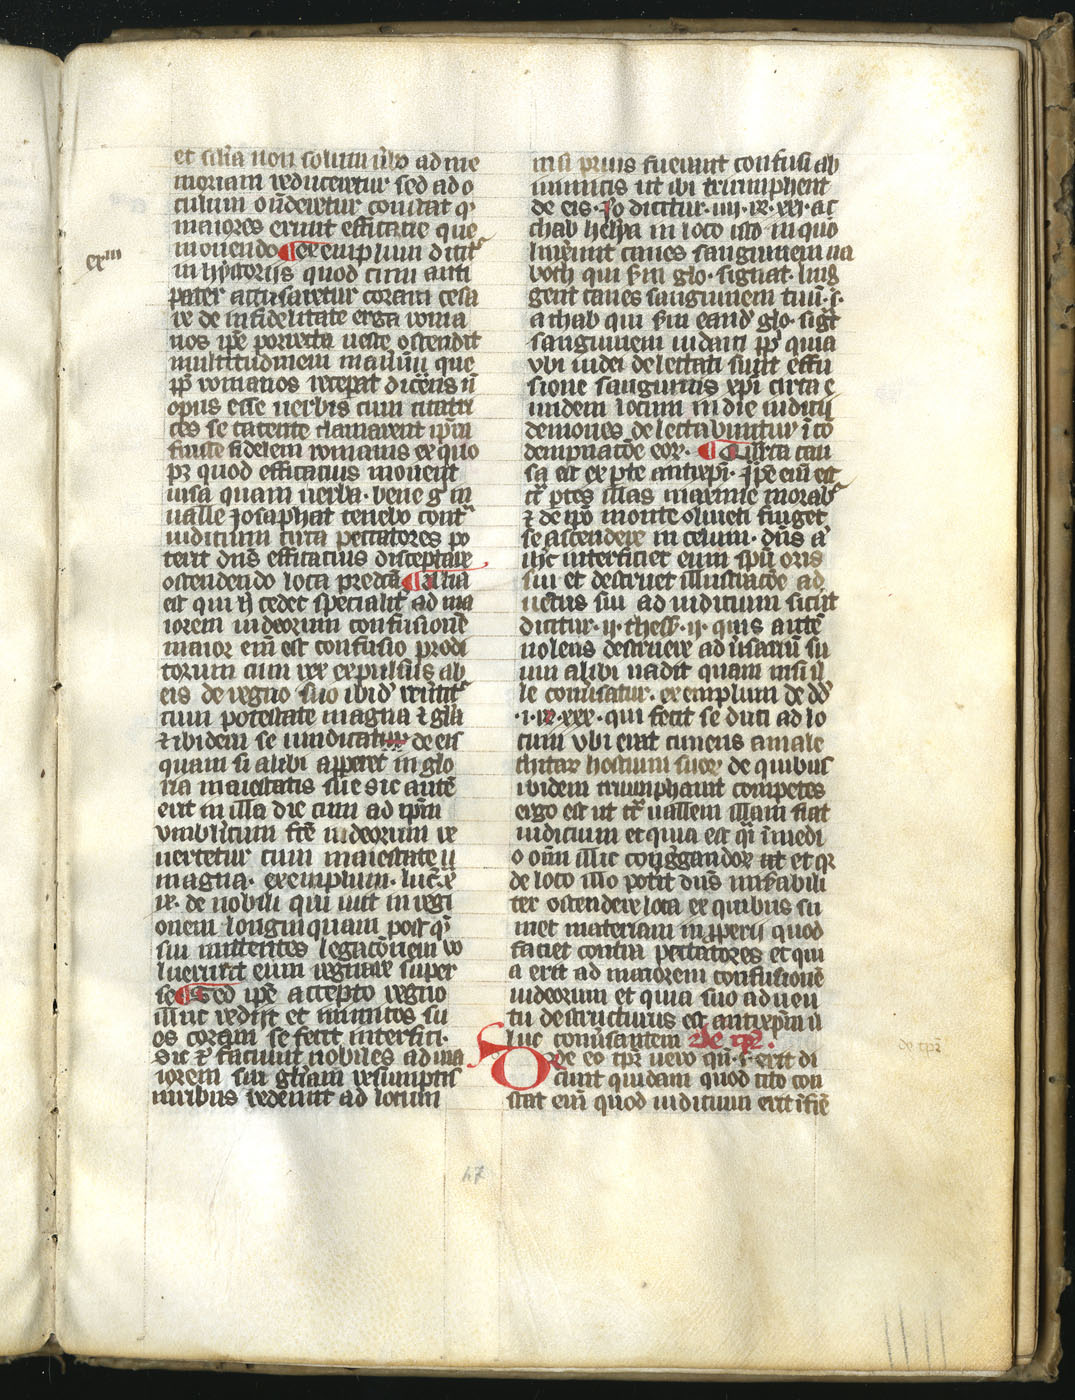 et silia non solum ubo ad me
moriam reduceretur sed ad o
culum onderetur constat qͥ
maiores erunt efficacie que
monendo ¶ exemplum dicitᵘʳ
exᵐ
in hystoriis quod cum anti
pater accusaretur coram cesa
re de infidelitate erga roma
nos ip̄e proiecta ueste ostendit
multitudinem
pp̄ romanos recepat dicens nͦ
opus esse uerbis cum cicatri
ces se tacente clamarent ip̄m
fuisse fidelem romanis ex quo
pꝫ quod efficacius mouent
uisa quam uerba. bene gͦ in
ualle Josaphat tenebo contᵃ
iudicium circa peccatores po
terit dn̄s efficacius disceptare
ostendendo loca predc̄a ¶ Alia
est qui h̄ cedet specialit̄ ad ma
iorem iudeorum confusionē
maior em̄ est confusio prodi
torum cum rex expulsus ab
eis de regno suo ibid̄ reūtit᷑
cum potestate magna ⁊ gl̄a
⁊ ibidem se uindicat de eis
quam si alibi apperet in glo
ria maiestatis sue sic autē
erit in illa die cum ad ip̄m
vmblicum tr̄e iudeorum re
uertetur cum maiestate ⁊
magna. exemplum. luc̄. x̄
ix. de nobili qui iuit in regi
onem longinquam post qͣ
sui mittentes legac̄onem no
luerunt eum regnare super
se ¶ Sed ip̄e accepto regno
illuc redijt et inimicos su
os coram se fecit interfici.
Sic ⁊ faciunt nobiles ad ma
iorem sui gl̄iam resumptis
uiribus redeunt ad locum
in si prius fuerunt confusi ab
inimicis ut ibi triumphent
de eis. Jo dicitur. iii. re. xxi. ac
chab helya in loco isto in quo
linx̄unt canes sanguinem na
both qui scd̄m glo. signat. ling
gent canes sanguinem tuū. s.
achab qui scd̄m eand̄ glo. sigt̄
sanguinem iudaici pp̄ quia
vbi iudei delectati sunt effu
sione sanguinis xpi circa e
undem locum in die iudicij
demones delectabuntur ī co
dempnac̄oe eoꝝ. ¶ Quīta cau
sa est ex pte antixp̄i. Jp̄e em̄ est
cͣ ptes illas maxime morabᵗ
⁊ de ip̄o monte oliueti finget
se ascendere in celum. dn̄s aͣ
ih̄c interficiet eum sp̄u oris
sui et destruet illustrac̄oe ad
uentus sui ad iudicium sicut
dicitur. ij. thess. ij. quis autē
uolens destruere ad usariū su
um alibi uadit quam nisi il
le conu̓satur. exemplum de dd̄
.i. re. xxx. qui fecit se duci ad lo
cum vbi erat cuneus amale
chitaꝝ hostium suoꝝ de quibus
ibidem triumphauit competes
ergo est ut cͣ uallem illam fiat
iudicium et quia est qͥ ī medi
o om̄ illic congͤgandoꝝ at et qꝛ
de loco illo potit dn̄s mirabili
ter ostendere loca ex quibus su
met materiam inꝓperij quod
faciet contra peccatores et qui
a erit ad maiorem confusionē
iudeorum et quia suo aduen
tu destructurus est antixp̄m il
luc conu̓santem De tp̄ꝛ.
Ode eo tp̄ꝛ uero qn̄. s. erit di
de tp̄ꝛ
cunt quidam quod cito con
stat em̄ quod iudicium erit ī fiē
47